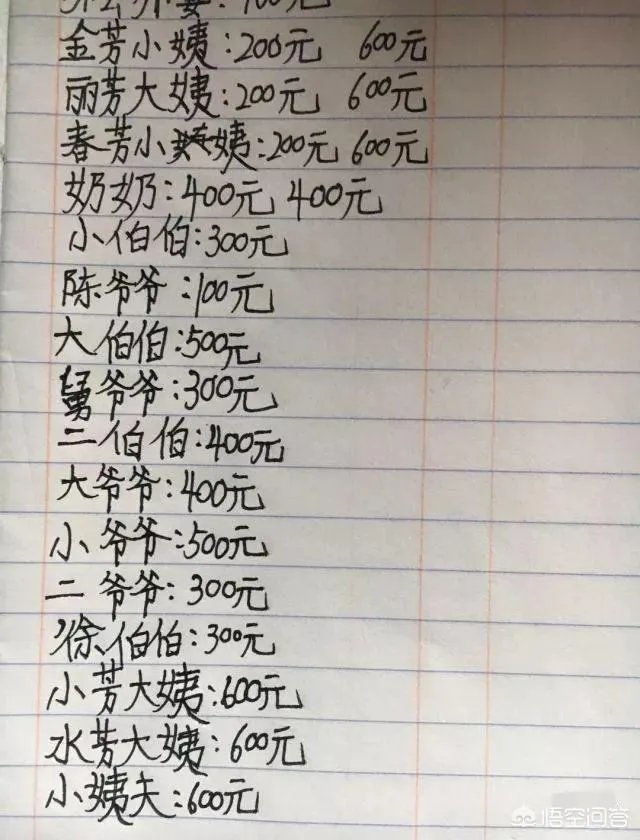 外公外婆:400元
金芳小姨:200元 600元
丽芳大姨:200元 600元
春芳小姨:200元 600元
奶奶:400元 400元
小伯伯:300元
陈爷爷:100元
大伯伯:500元
舅爷爷:300元
二伯伯:400元
大爷爷:400元
小爷爷:500元
二爷爷:300元
徐伯伯:300元
小芳大姨:600元
水芳大姨:600元
小姨夫:600元
悟空问答